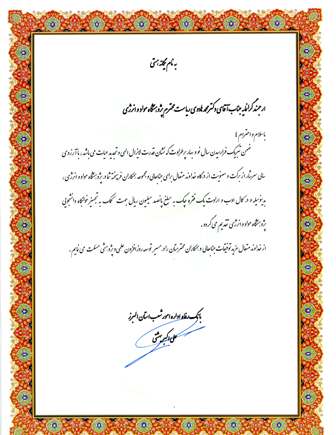 به نام یگانه هستی
ارجمند گرانمایه جناب آقای دکتر محمد هادی ریاست محترم پژوهشگاه مواد و انرژی
با سلام و احترام
ضمن تبریک فرارسیدن سال نو و بهار پرطراوت که نشان قدرت لایزال الهی و تجدید حیات می باشد، با آرزوی
سالی سرشار از برکت و معنویت از درگاه خداوند متعال برای جنابعالی و مجموعه همکاران فرهیخته شاد، پژوهشگاه مواد و انرژی،
بدینوسیله و در کمال ادب و ارادت یک فقره چک به مبلغ پانصد میلیون ریال جهت کمک به تجهیز خوابگاه دانشجویی
پژوهشگاه مواد و انرژی تقدیم می گردد.
از خداوند متعال مزید توفیقات جنابعالی و همکاران محترمتان را در مسیر توسعه روزافزون علمی و پژوهشی مسئلت می نمایم.
بانک رفاه اداره امور شعب استان البرز
علی